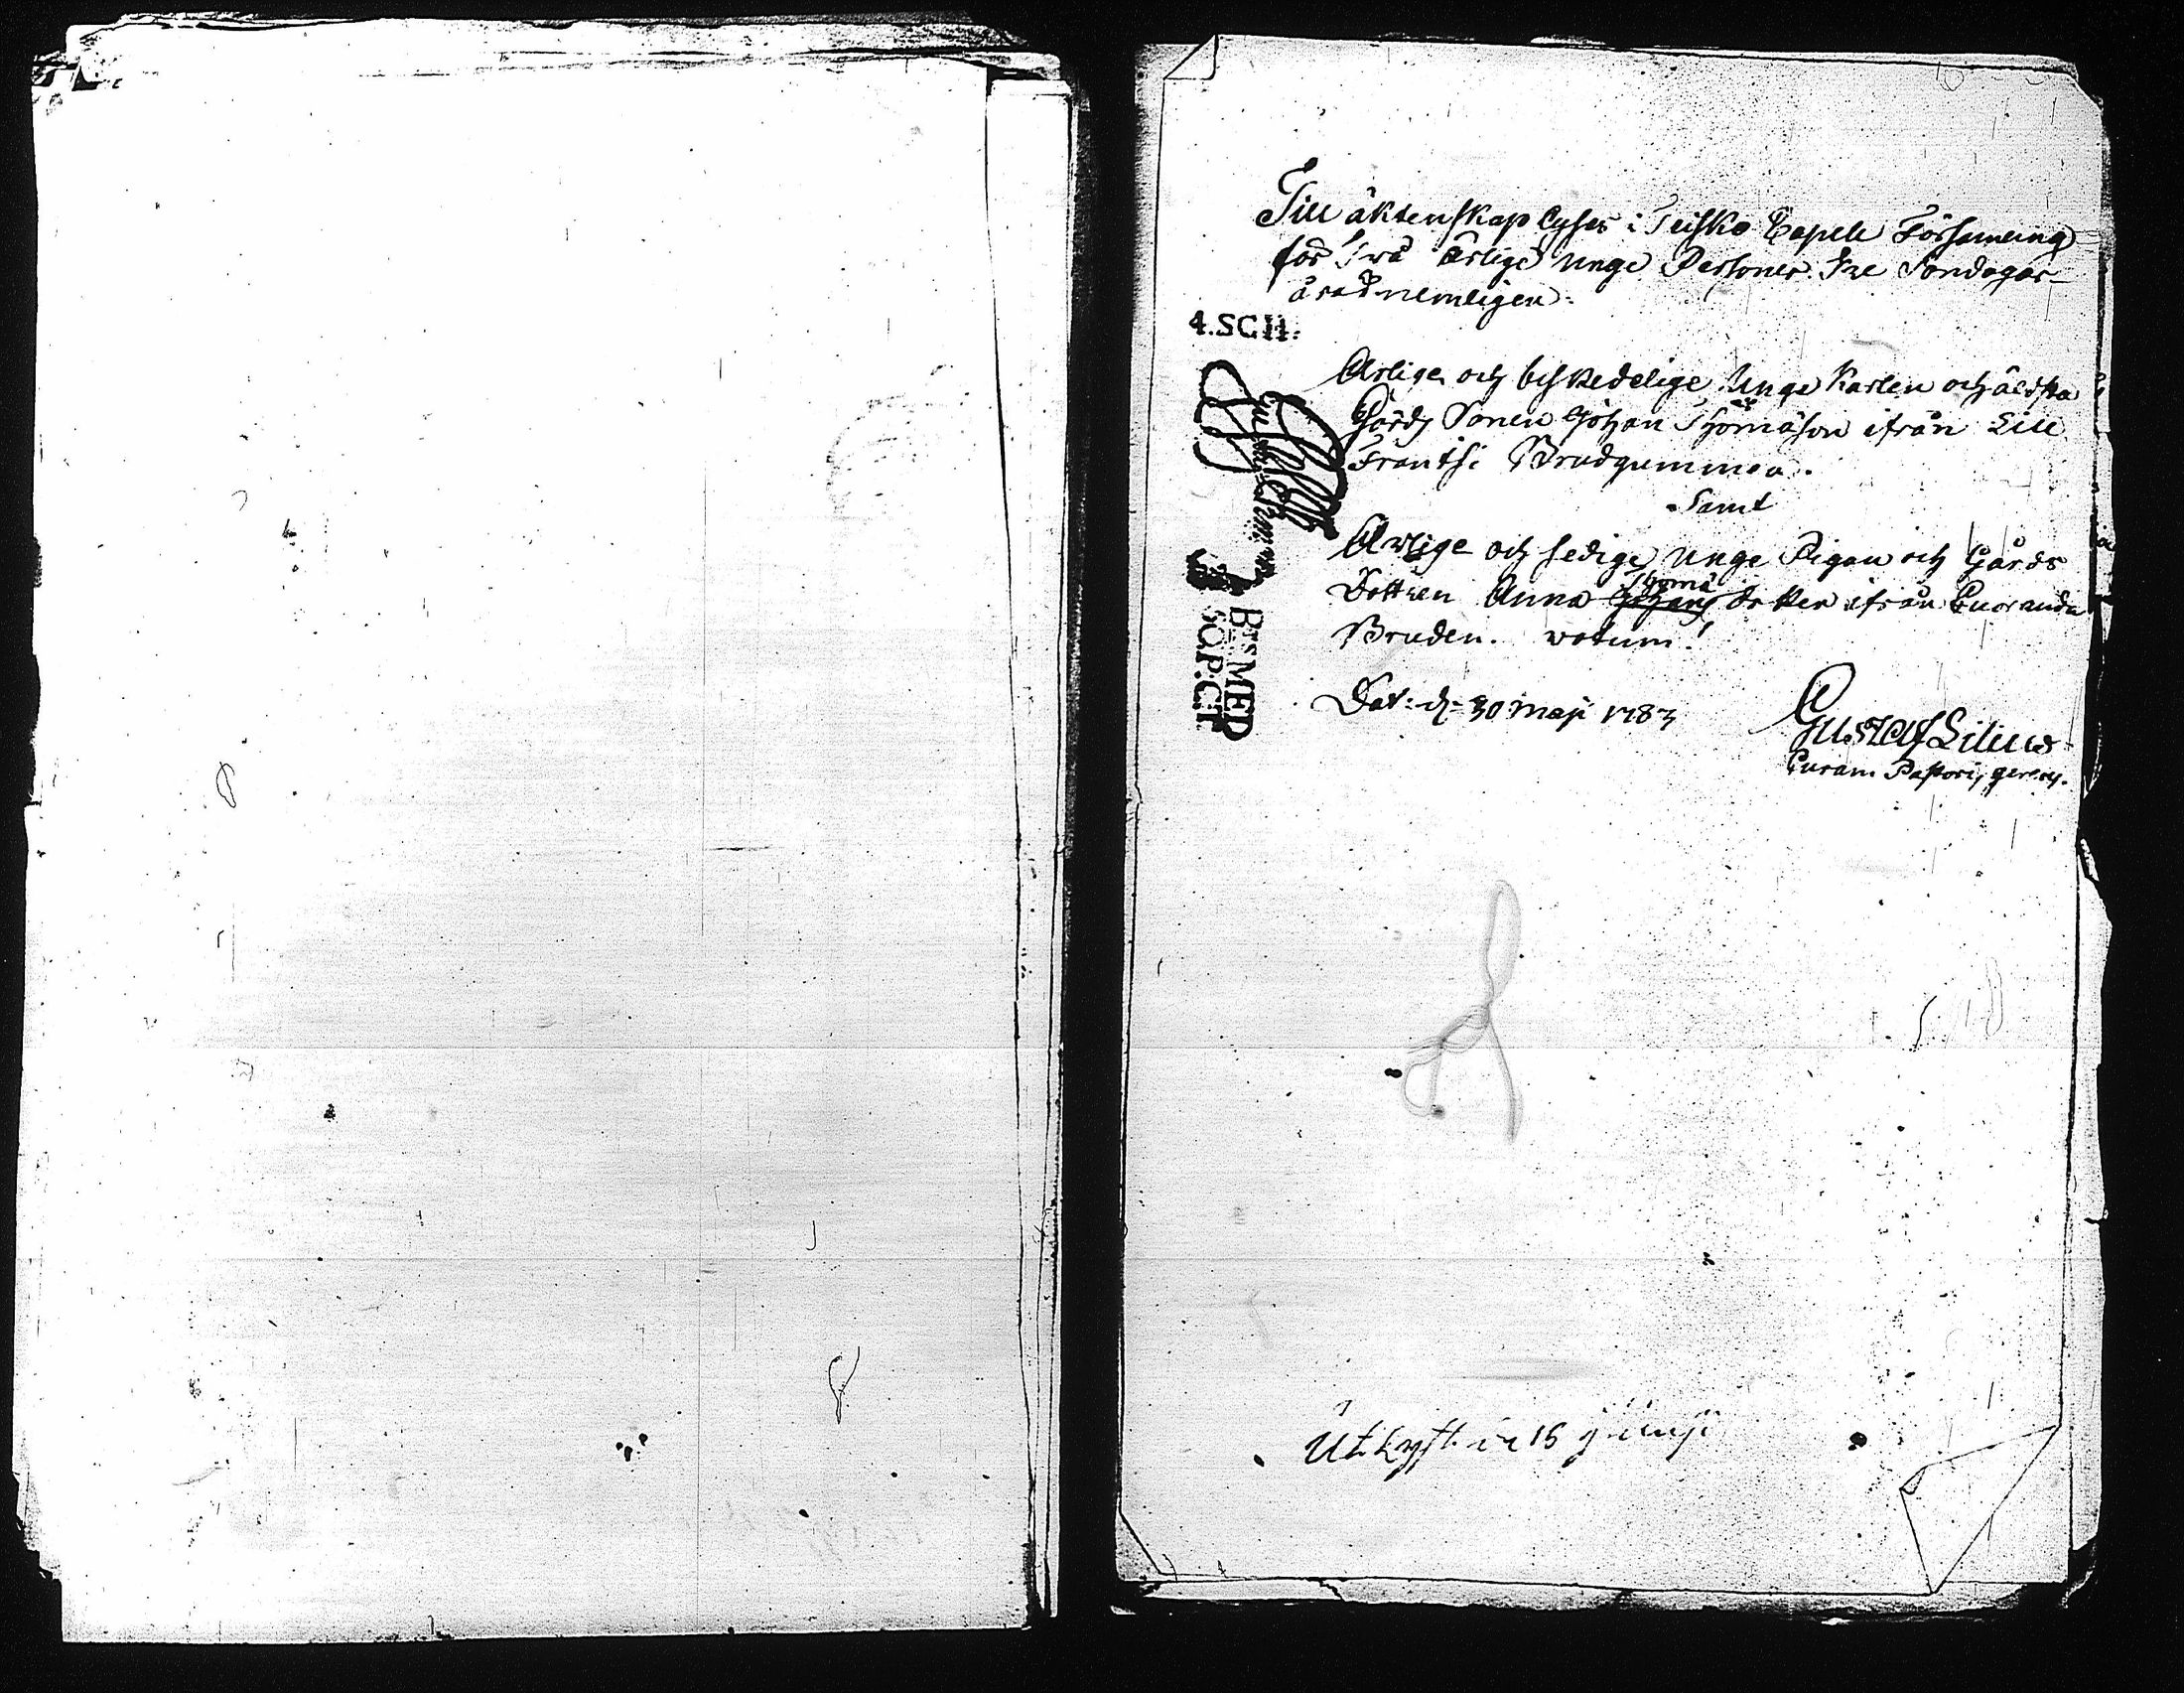 Till äktenskap lyses i Teisko Capell Församling
för Twå Ärlige unge Personer Tre Söndagar
å rad nemligen:
4.SCH:
Ärlige och beskedelige Unge Karlen och äldsta
Gårds Sonen Johan Thomäson ifrån Lill
Frantsi Brudgummen.
Samt
Ärlige och sedige unge Pigan och Gårds
Dottren Anna Thomä dotter ifrån Cuoranda
Bruden. wotum!
BrsMED
SQP.C.T.
Dat: d. 30 Maji 1783
Gustaf Lilius
Curam Pastoris gerens.
Utlyst d 15 Junji